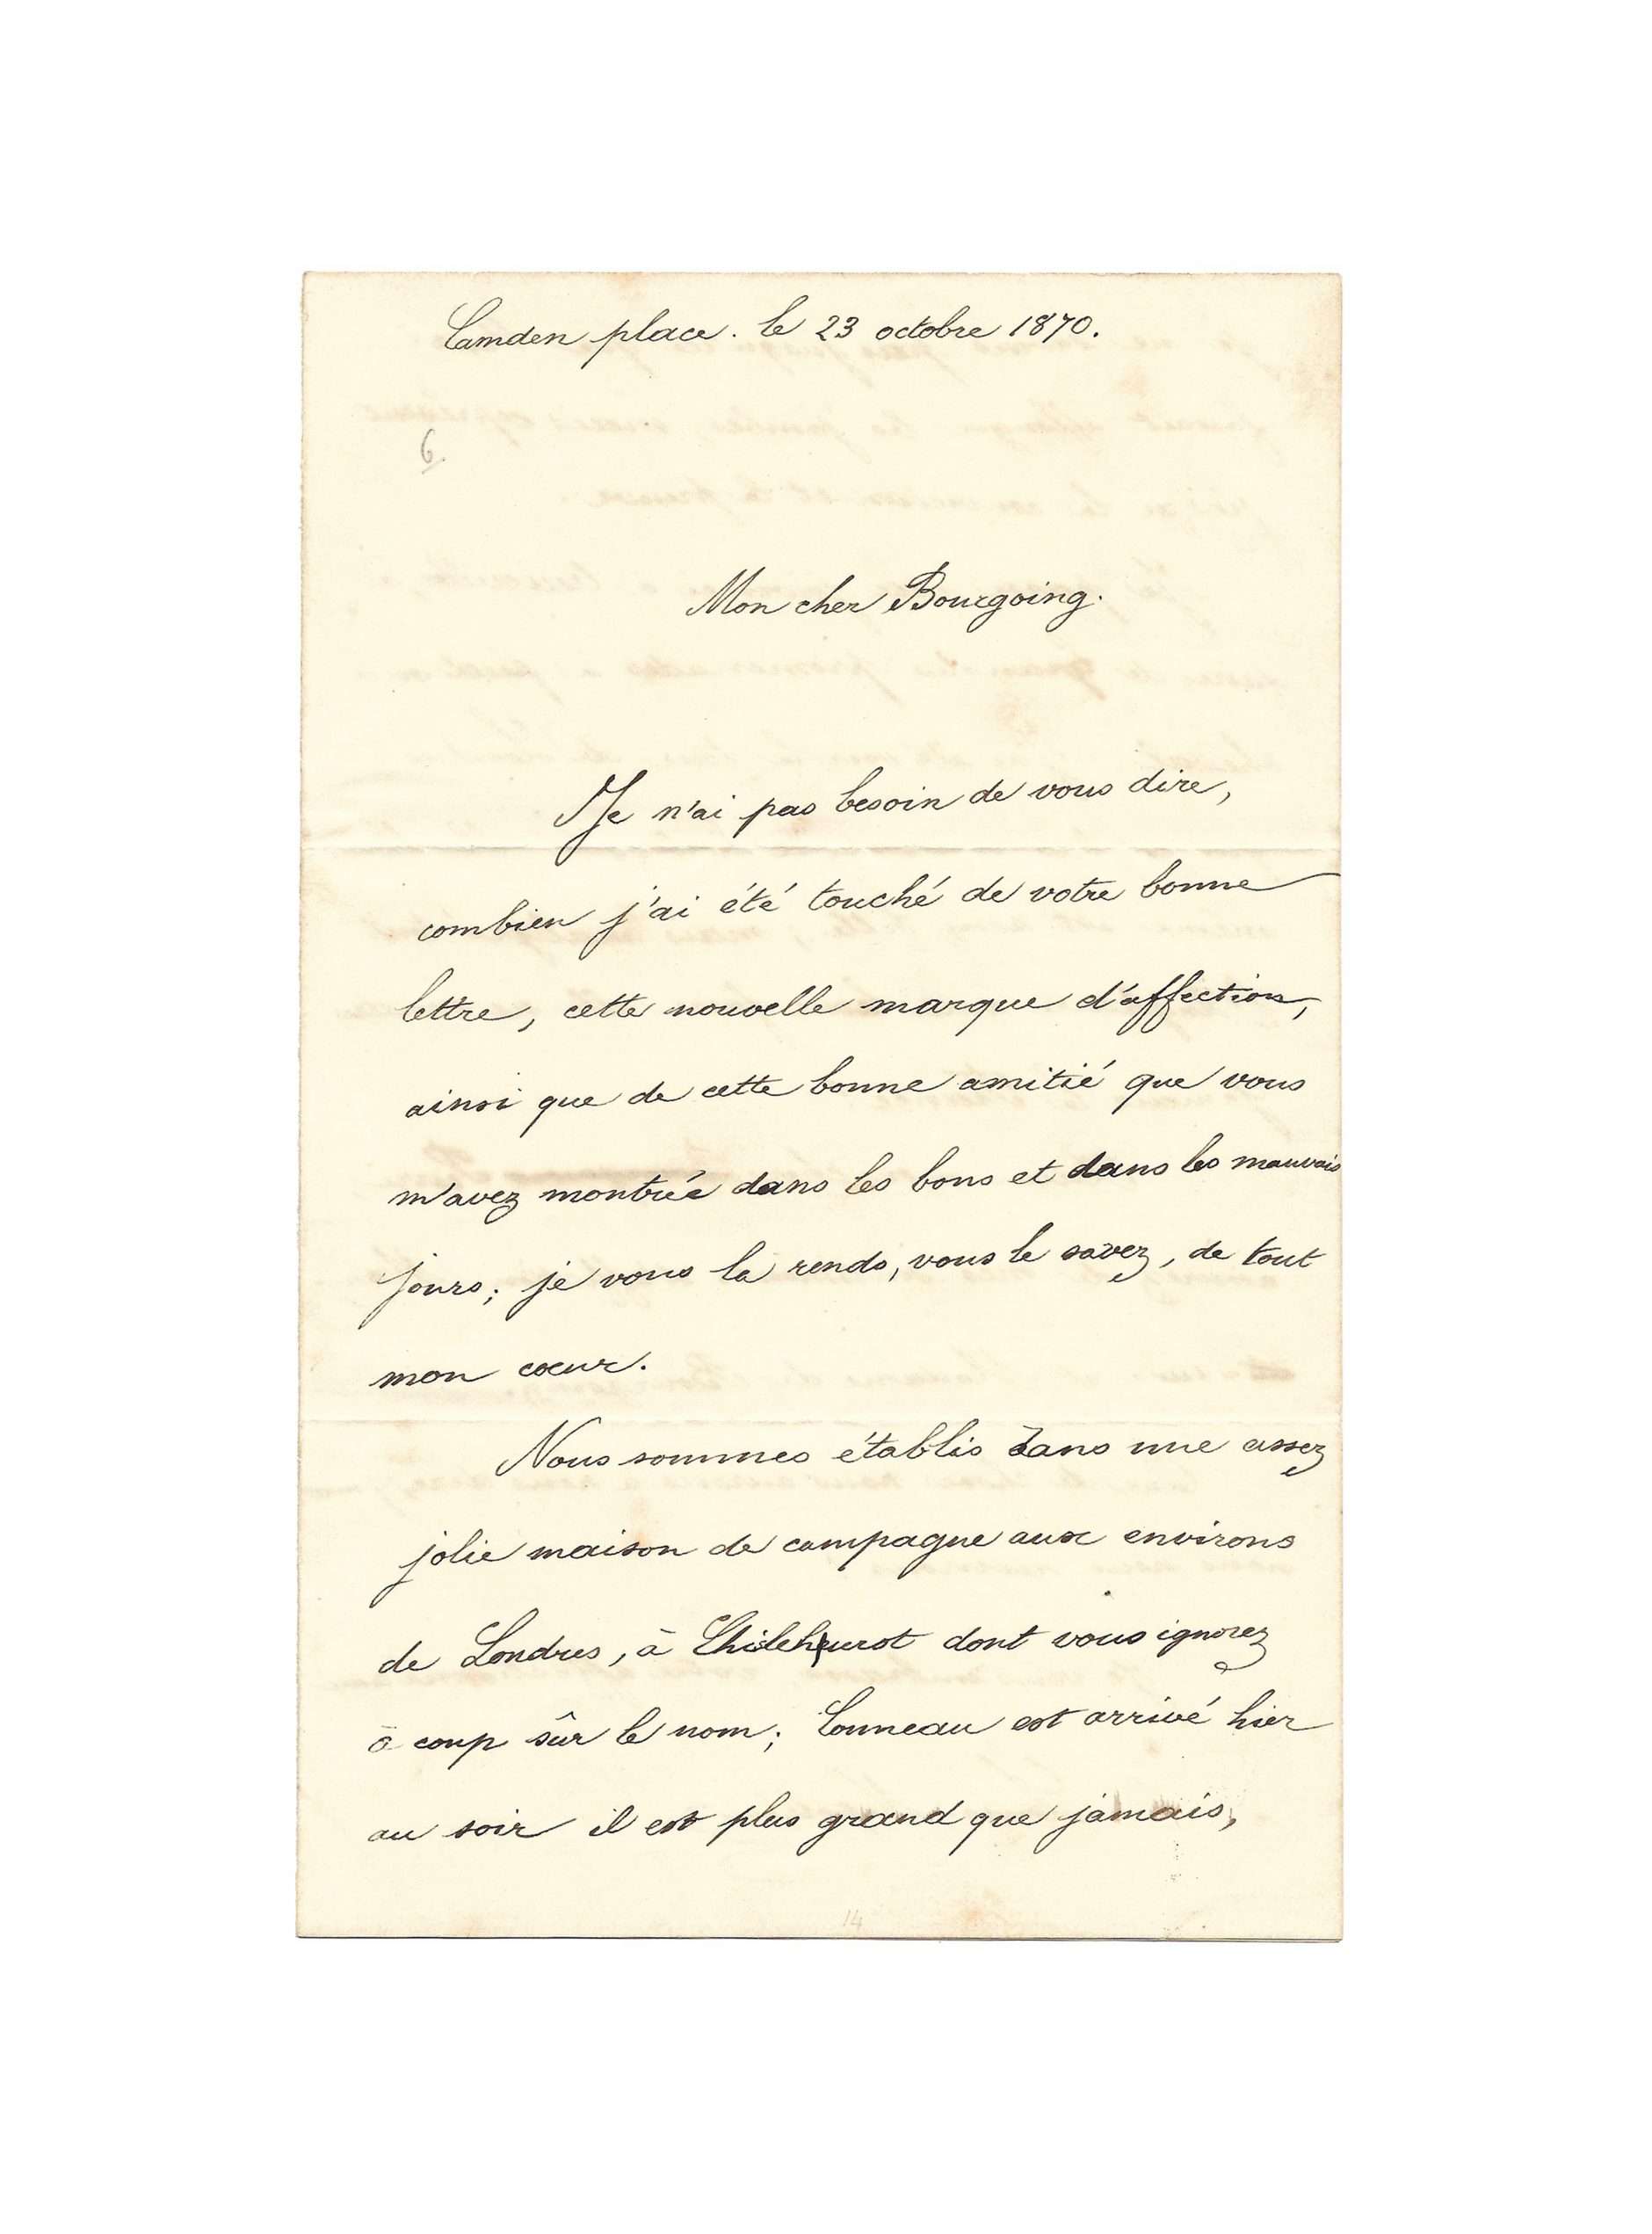 Camden place. le 23 octobre 1870.
6.
Mon cher Bourgoing.
Je n'ai pas besoin de vous dire,
combien j'ai été touché de votre bonne
lettre, cette nouvelle marque d'affection,
ainsi que de cette bonne amitié que vous
m'avez montrée dans les bons et dans les mauvais
jours; je vous la rends, vous le savez, de tout
mon cœur.
Nous sommes établis dans une assez
jolie maison de campagne aux environs
de Londres, à Chilehurst dont vous ignorez
à coup sûr le nom; Conneau est arrivé hier
au soir il est plus grand que jamais,
14